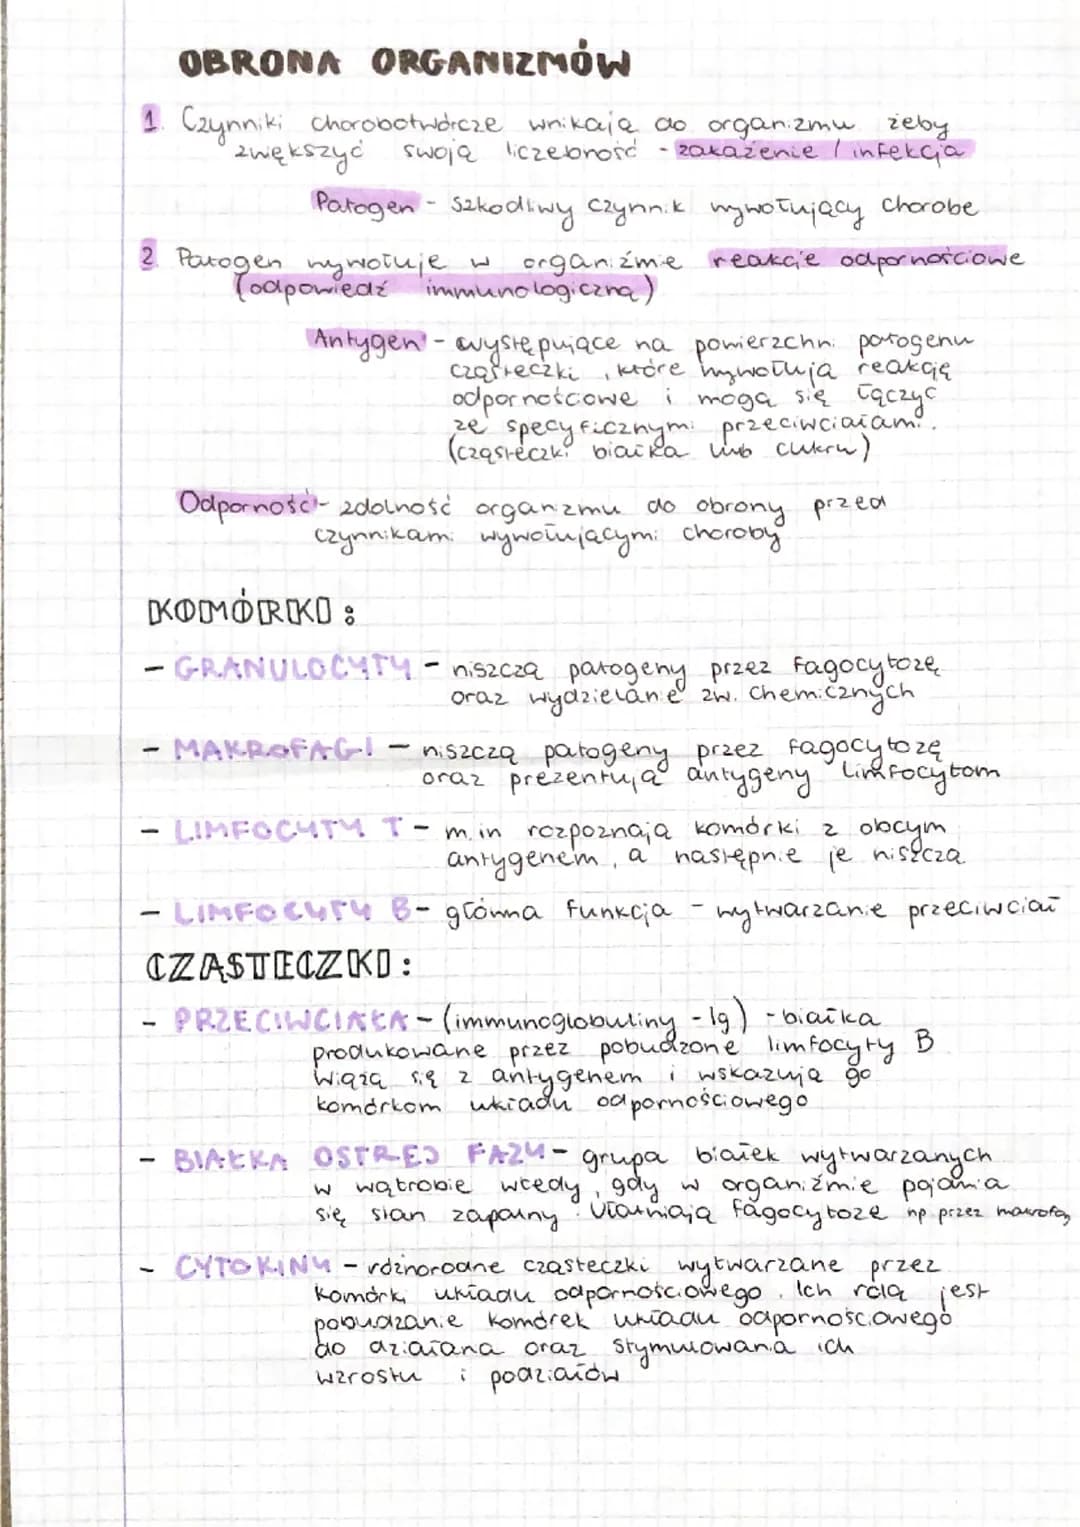 OBRONA ORGANIZMÓW
1. Czynniki chorobotwórcze wnikają do organizmu żeby
zwiększyć swoją liczebność - zakażenie / infekcja
Patogen - szkodliwy czynnik wywołujący chorobe
2. Patogen wywołuje w organiźmie reakcje odpornościowe
(odpowiedź immunologiczną)
Antygen - występujące na powierzchni patogenu
cząsteczki, które wywołują reakcję
odpornościowe i mogą się łączyć
ze specyficznymi przeciwciałami.
(cząsteczki białka lub cukru)
Odporność - zdolność organizmu do obrony przed
czynnikami wywołującymi choroby
KOMÓRKI:
- GRANULOCYTY - niszczą patogeny przez fagocytozę
oraz wydzielanie zw. chemicznych
- MAKROFAGI - niszczą patogeny przez fagocytozę
oraz prezentują antygeny limfocytom
- LIMFOCYTY T - m.in rozpoznają komórki z obcym
antygenem, a następnie je niszczą
- LIMFOCYTY B - główna funkcja - wytwarzanie przeciwciał
CZĄSTECZKI:
- PRZECIWCIAŁA - (immunoglobuliny - Ig) - białka
produkowane przez pobudzone limfocyty B
Wiążą się z antygenem i wskazują go
komórkom układu odpornościowego
- BIAŁKA OSTREJ FAZY - grupa białek wytwarzanych
w wątrobie wtedy, gdy w organiźmie pojawia
się stan zapalny. Ułatwiają fagocytoze np przez makrofagi
- CYTOKINY - różnorodne cząsteczki wytwarzane przez
komórki układu odpornościowego. Ich rolą jest
pobudzanie komórek układu odpornościowego
do działana oraz stymulowana ich
wzrostu i podziałów